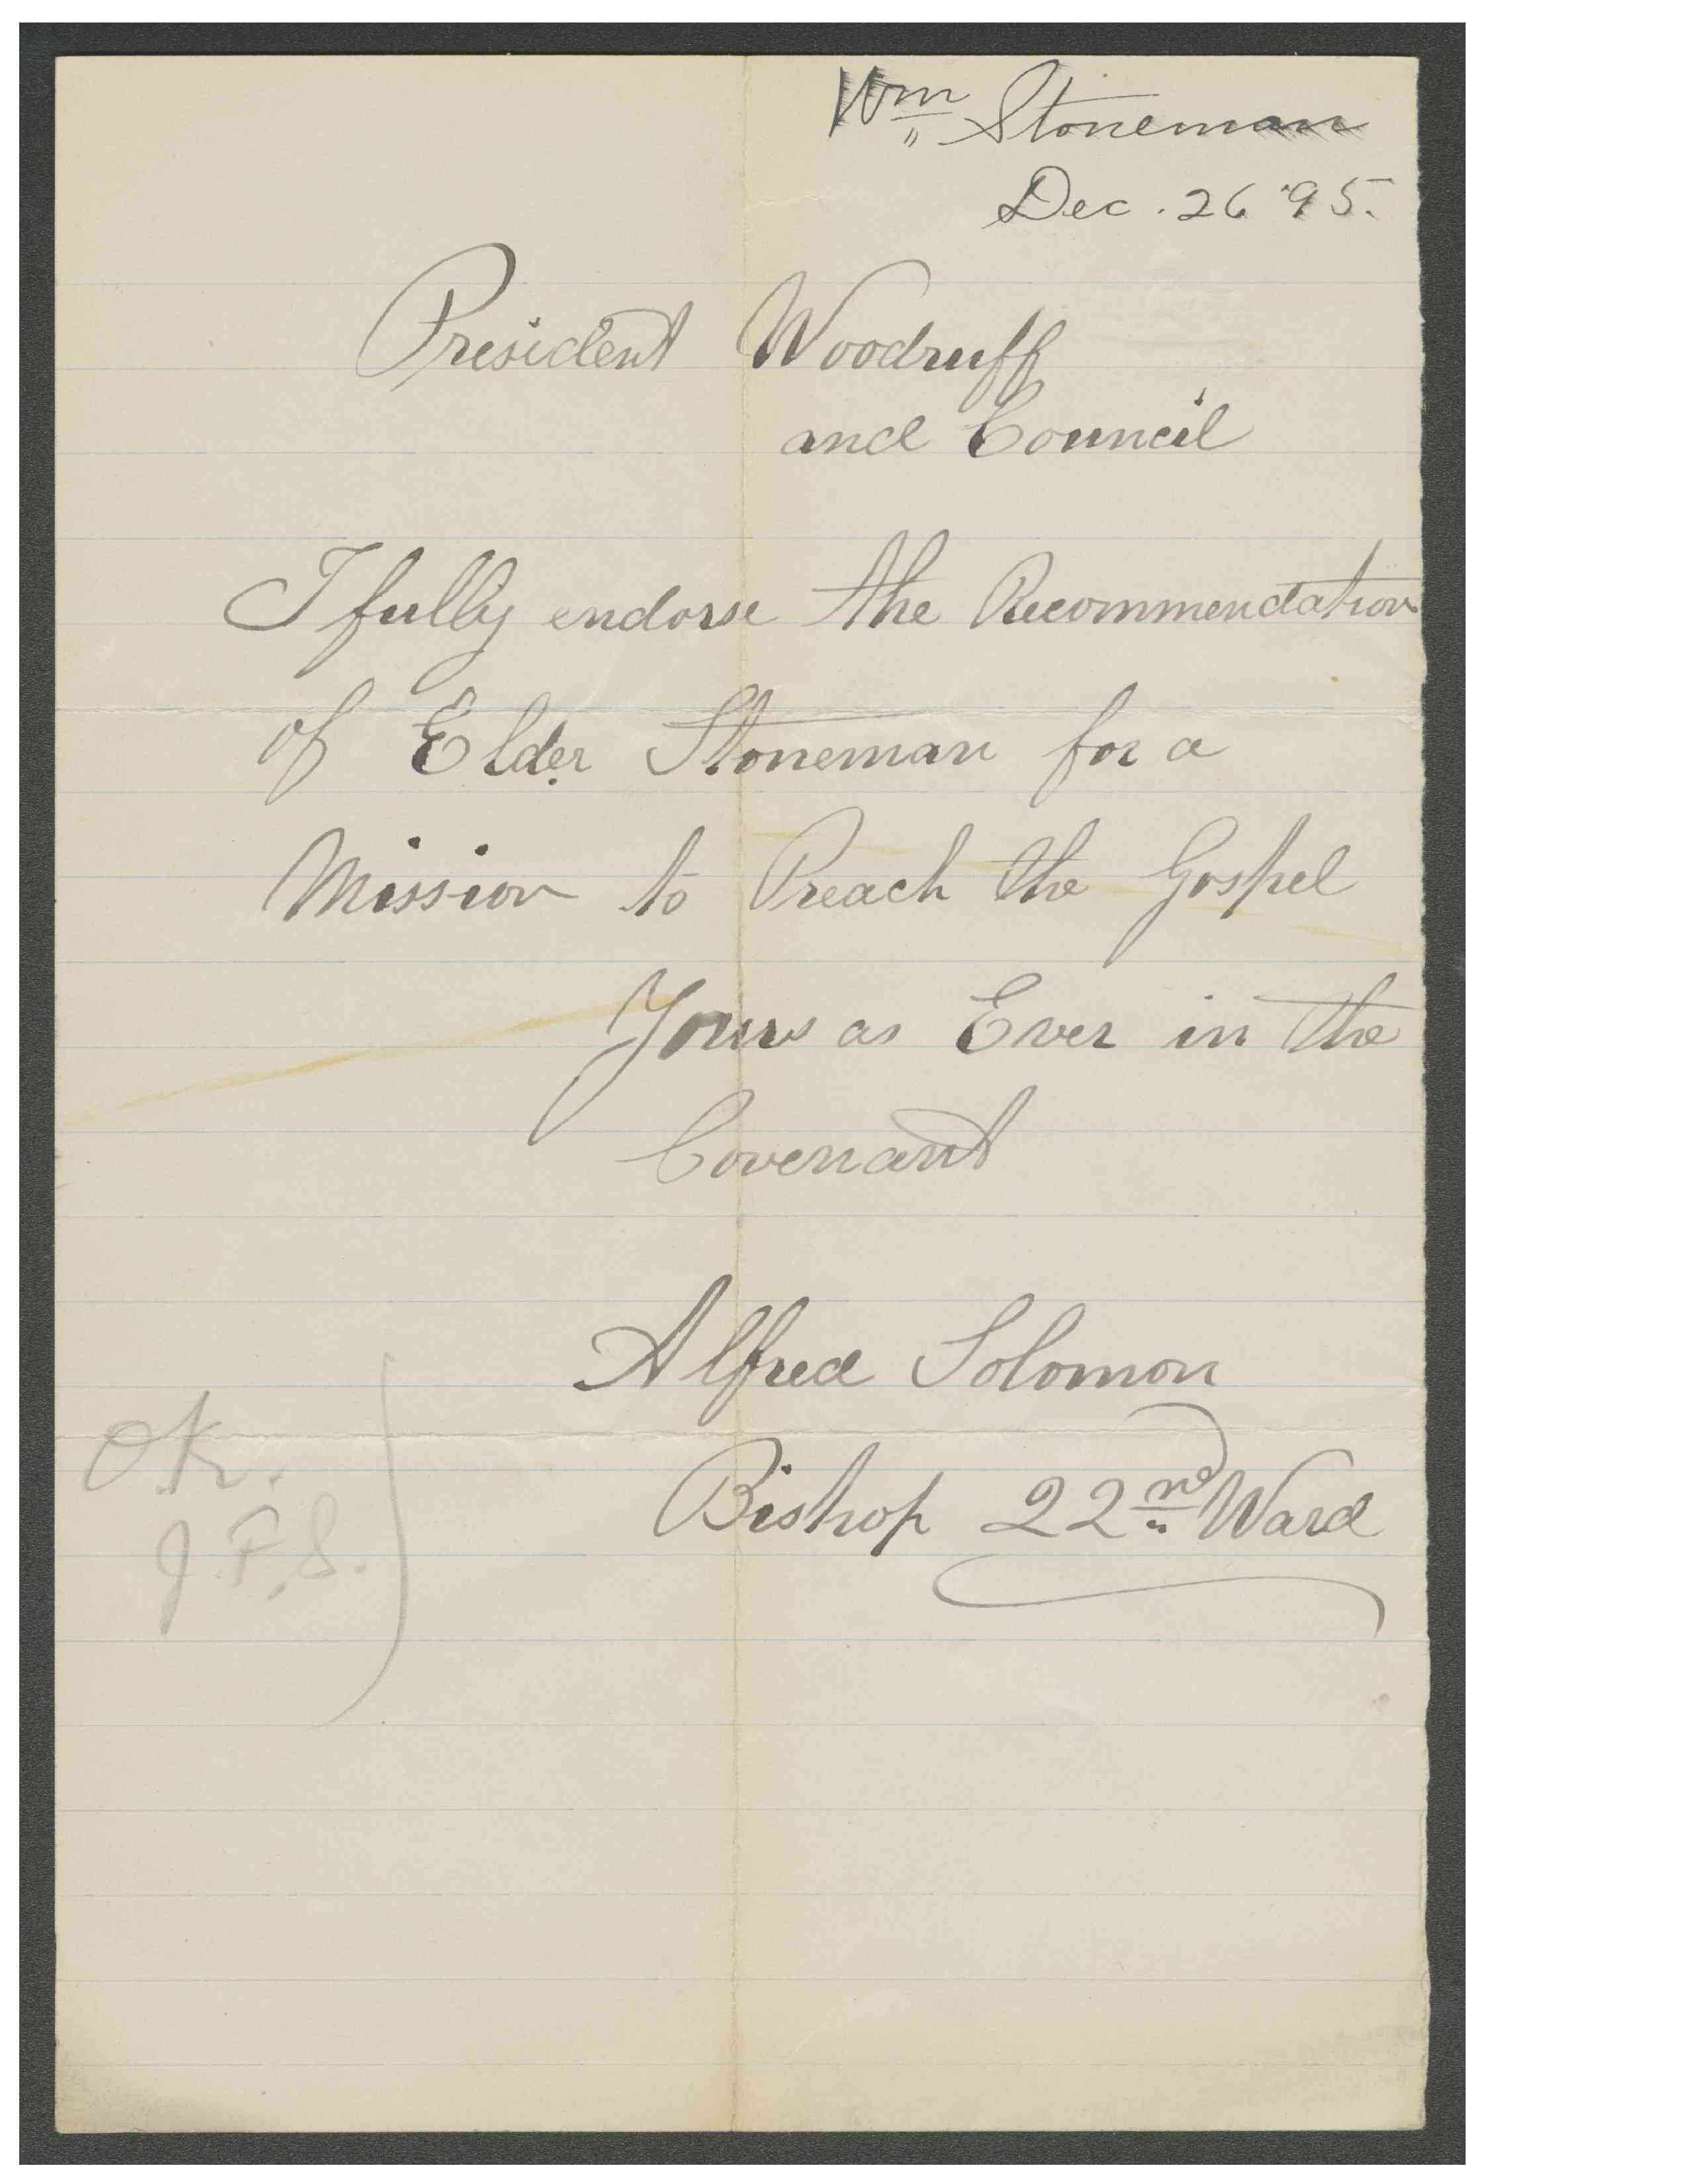 Wm Stoneman
Dec. 26 '95.
President Woodruff
and Council
I fully endorse the Recommendation
of Elder Stoneman for a
Mission to Preach the Gospel
Yours as Ever in the
Covenant
Alfred Solomon
Bishop 22nd Ward
OK.
J. F. S.